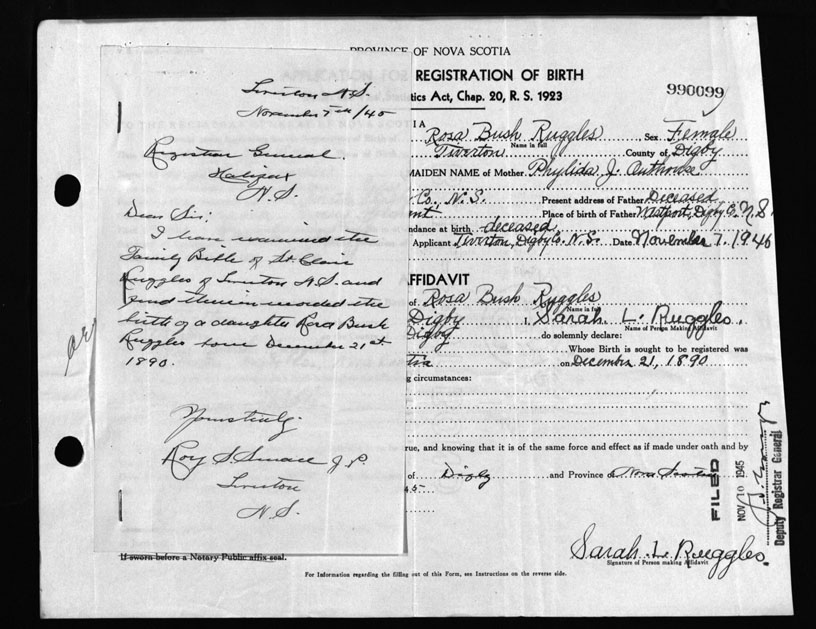 PROVINCE OF NOVA SCOTIA
REGISTRATION OF BIRTH
tics Act, Chap. 20, R. S. 1923
990099
Tiverton N.S.
November 7th/45
Registrar General
Halifax
N.S.
Dear Sir:
I have examined the
Family Bible of St. Clair
Ruggles of Tiverton N.S. and
find therein recorded the
birth of a daughter Rosa Bush
Ruggles born December 21st
1890.
Yours truly
Roy S. Smale J.P.
Tiverton
N.S.
IA
Rosa Bush Ruggles Sex Female
Name in full
Tiverton County of Digby
MAIDEN NAME of Mother Phylida J.
Co., N.S. Present address of Father Deceased
Place of birth of Father Westport, Digby Co. N.S.
ndance at birth deceased
Applicant Tiverton, Digby Co. N.S. Date November 7, 1945
FFIDAVIT
of Rosa Bush Ruggles
Name in full
Digby I, Sarah L. Ruggles,
Name of Person Making Affidavit
Digby do solemnly declare:
Whose Birth is sought to be registered was
on December 21, 1890
g circumstances:
rue, and knowing that it is of the same force and effect as if made under oath and by
of Digby and Province of Nova Scotia
45
FILED
NOV 10 1945
Deputy Registrar General
Sarah L. Ruggles.
Signature of Person making Affidavit
If sworn before a Notary Public affix seal.
For Information regarding the filling out of this Form, see Instructions on the reverse side.